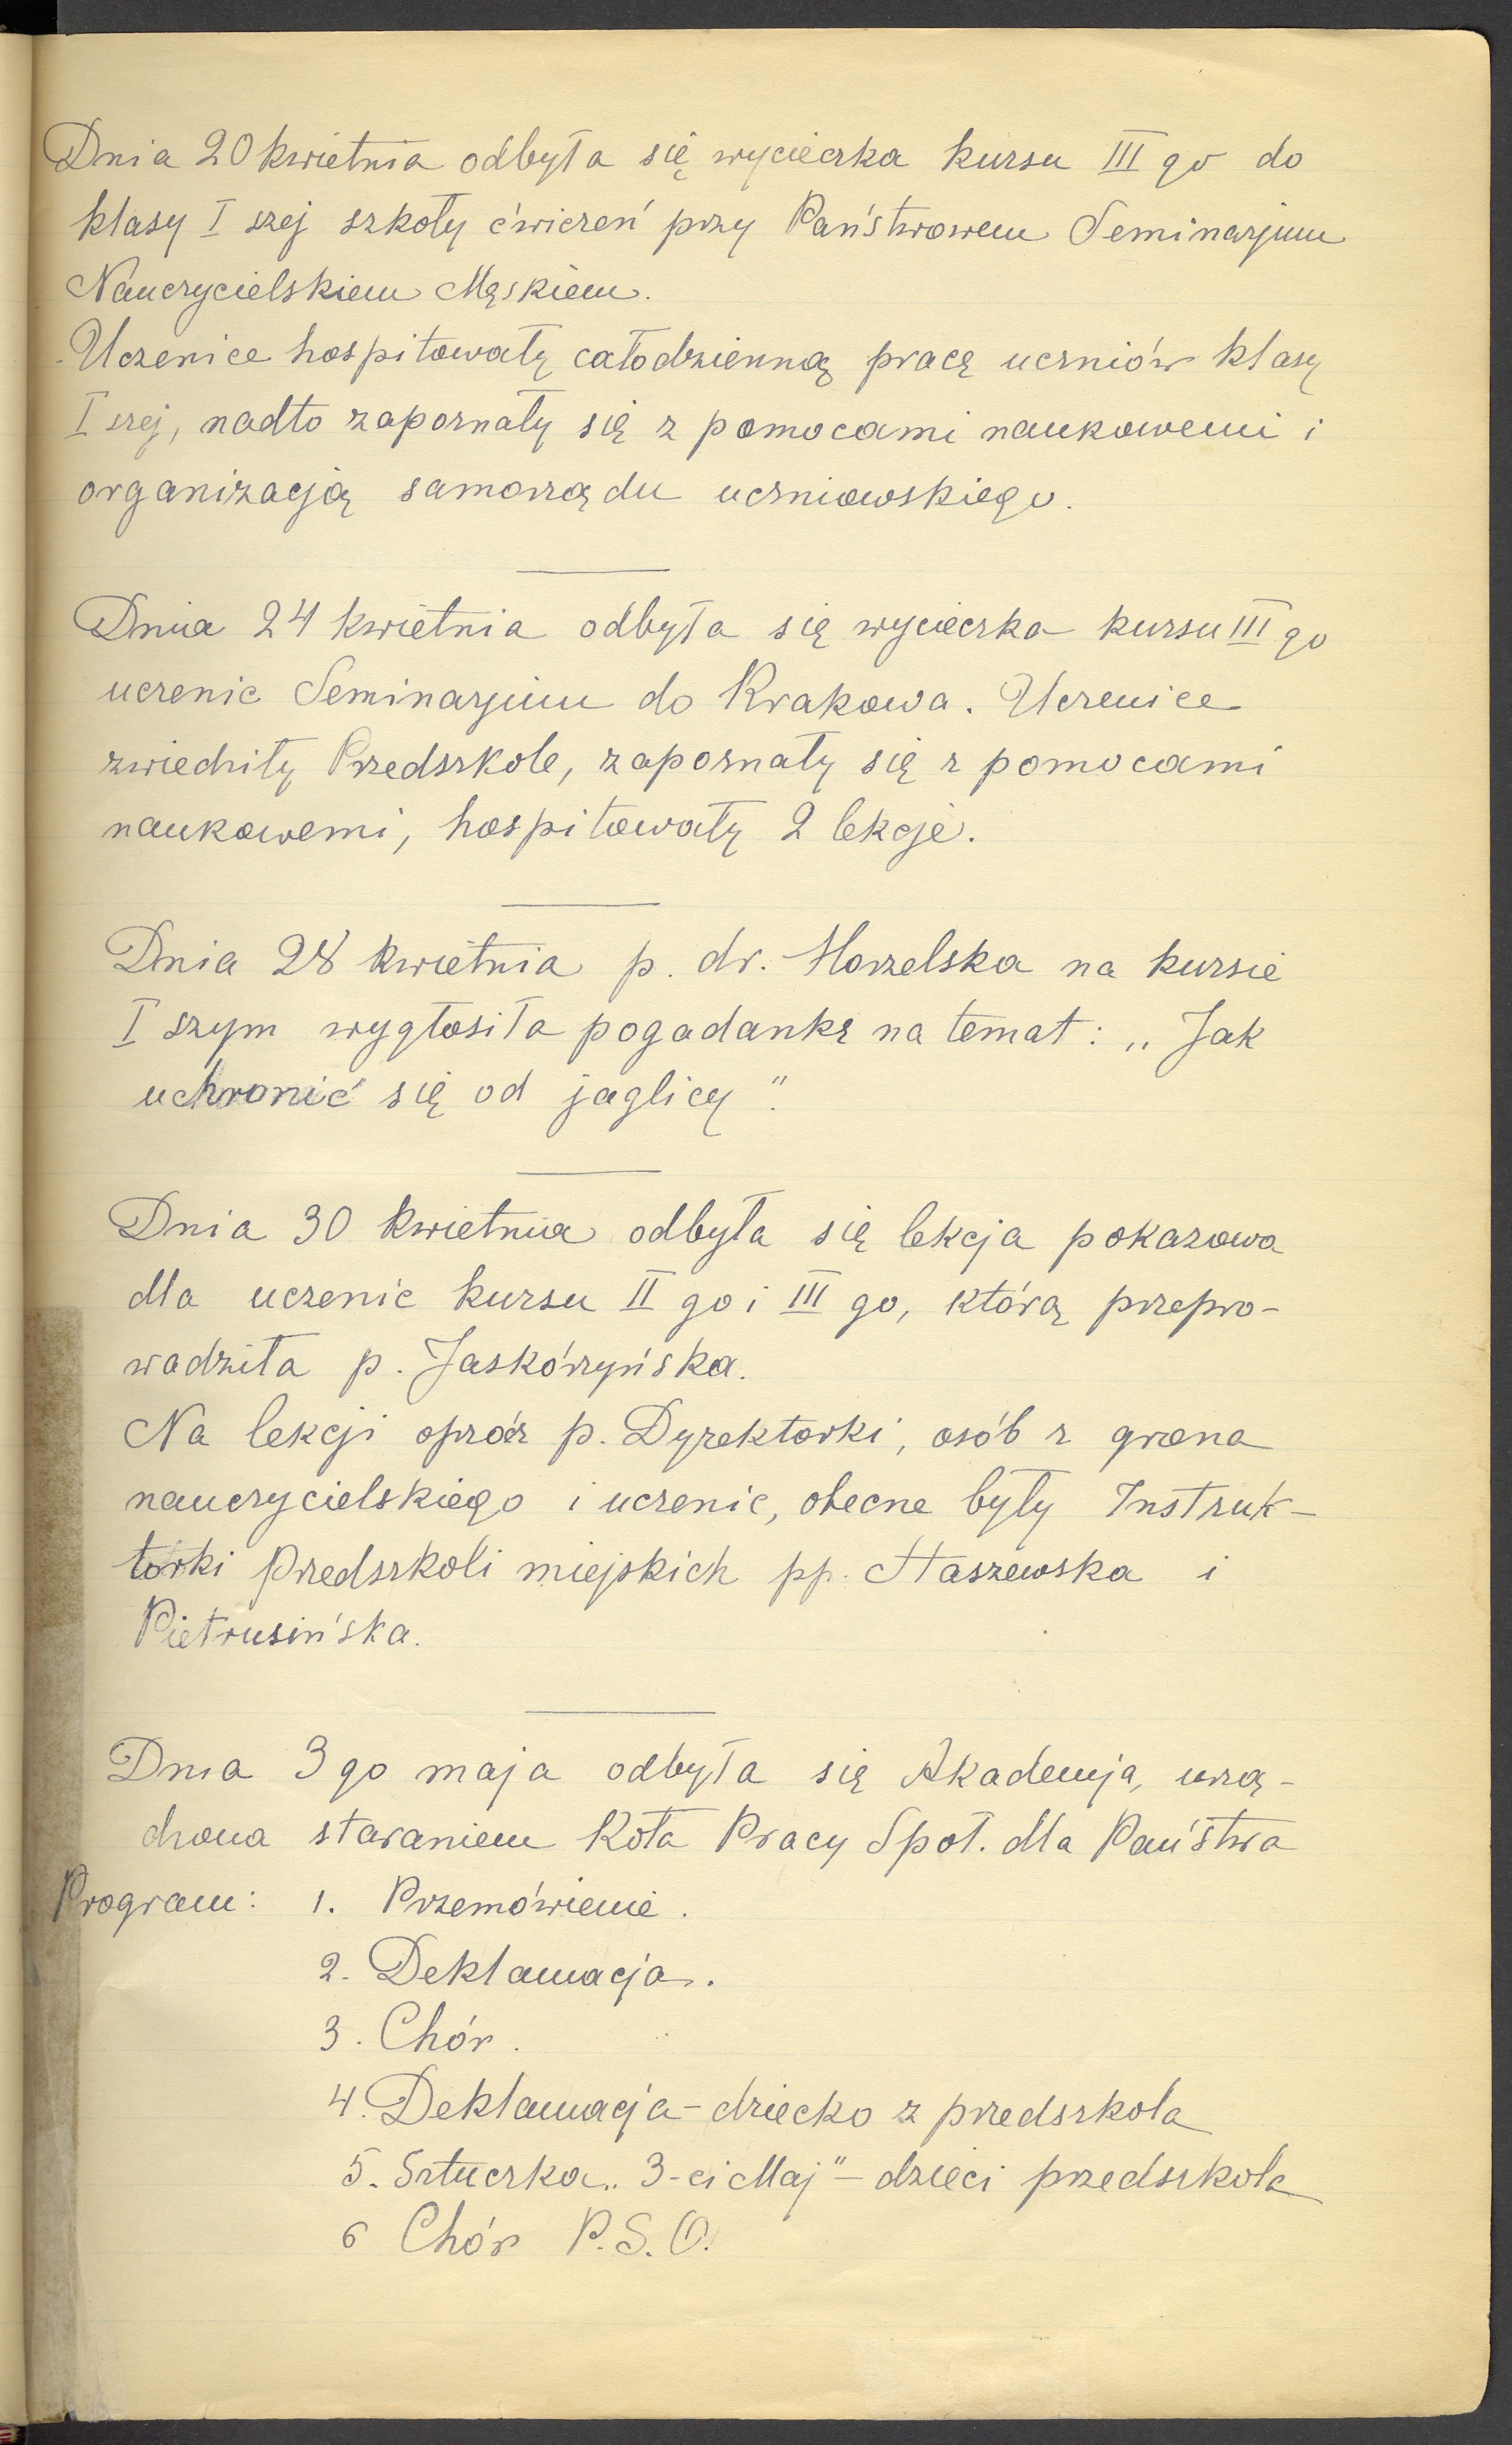 Dnia 20 kwietnia odbyła się wycieczka kursu III go do
klasy I szej szkoły ćwiczeń przy Państwowem Seminarjum
Nauczycielskiem Męskiem.
Uczenice hospitowały całodzienną pracę uczniów klasy
I szej, nadto zapoznały się z pomocami naukowemi i
organizacją samorządu uczniowskiego.
Dnia 24 kwietnia odbyła się wycieczka kursu III go
uczenic Seminarjum do Krakowa. Uczenice
zwiedziły Przedszkole, zapoznały się z pomocami
naukowemi, hospitowały 2 lekcje.
Dnia 28 kwietnia p. dr. Horzelska na kursie
I szym wygłosiła pogadankę na temat: „Jak
uchronić się od jaglicy".
Dnia 30 kwietnia odbyła się lekcja pokazowa
dla uczenic kursu II go i III go, którą przepro-
wadziła p. Jaskórzyńska.
Na lekcji oprócz p. Dyrektorki, osób z grona
nauczycielskiego i uczenic, obecne były Instruk-
torki Przedszkoli miejskich pp. Staszewska i
Pietrusińska.
Dnia 3 go maja odbyła się Akademja, urzą-
dzona staraniem Koła Pracy Społ. dla Państwa
Program: 1. Przemówienie.
2. Deklamacja.
3. Chór.
4. Deklamacja - dziecko z przedszkola
5. Sztuczka „3-ci Maj" - dzieci przedszkola
6 Chór P.S.O.